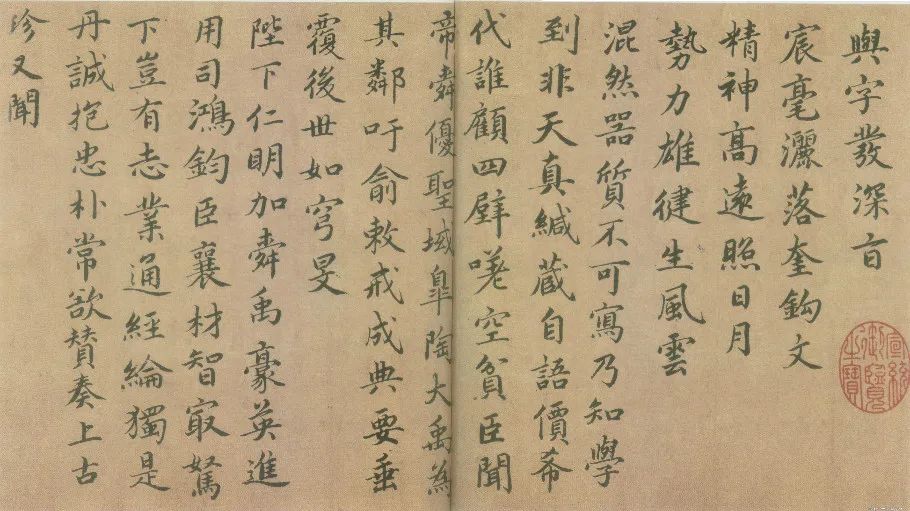 與字發深旨
宸毫灑落奎鉤文
精神高遠照日月
勢力雄健生風雲
混然器質不可寫乃知學
到非天真緘藏自語價希
代誰顧四壁嗟空貧臣聞
帝舜優聖域皐陶大禹爲
其鄰吁俞敕戒成典要垂
覆後世如穹旻
陛下仁明加舜禹豪英進
用司鴻鈞臣襄材智冣駑
下豈有志業通經綸獨是
丹誠抱忠朴常欲贊奏上古
珍又聞
宣統御覽之寶